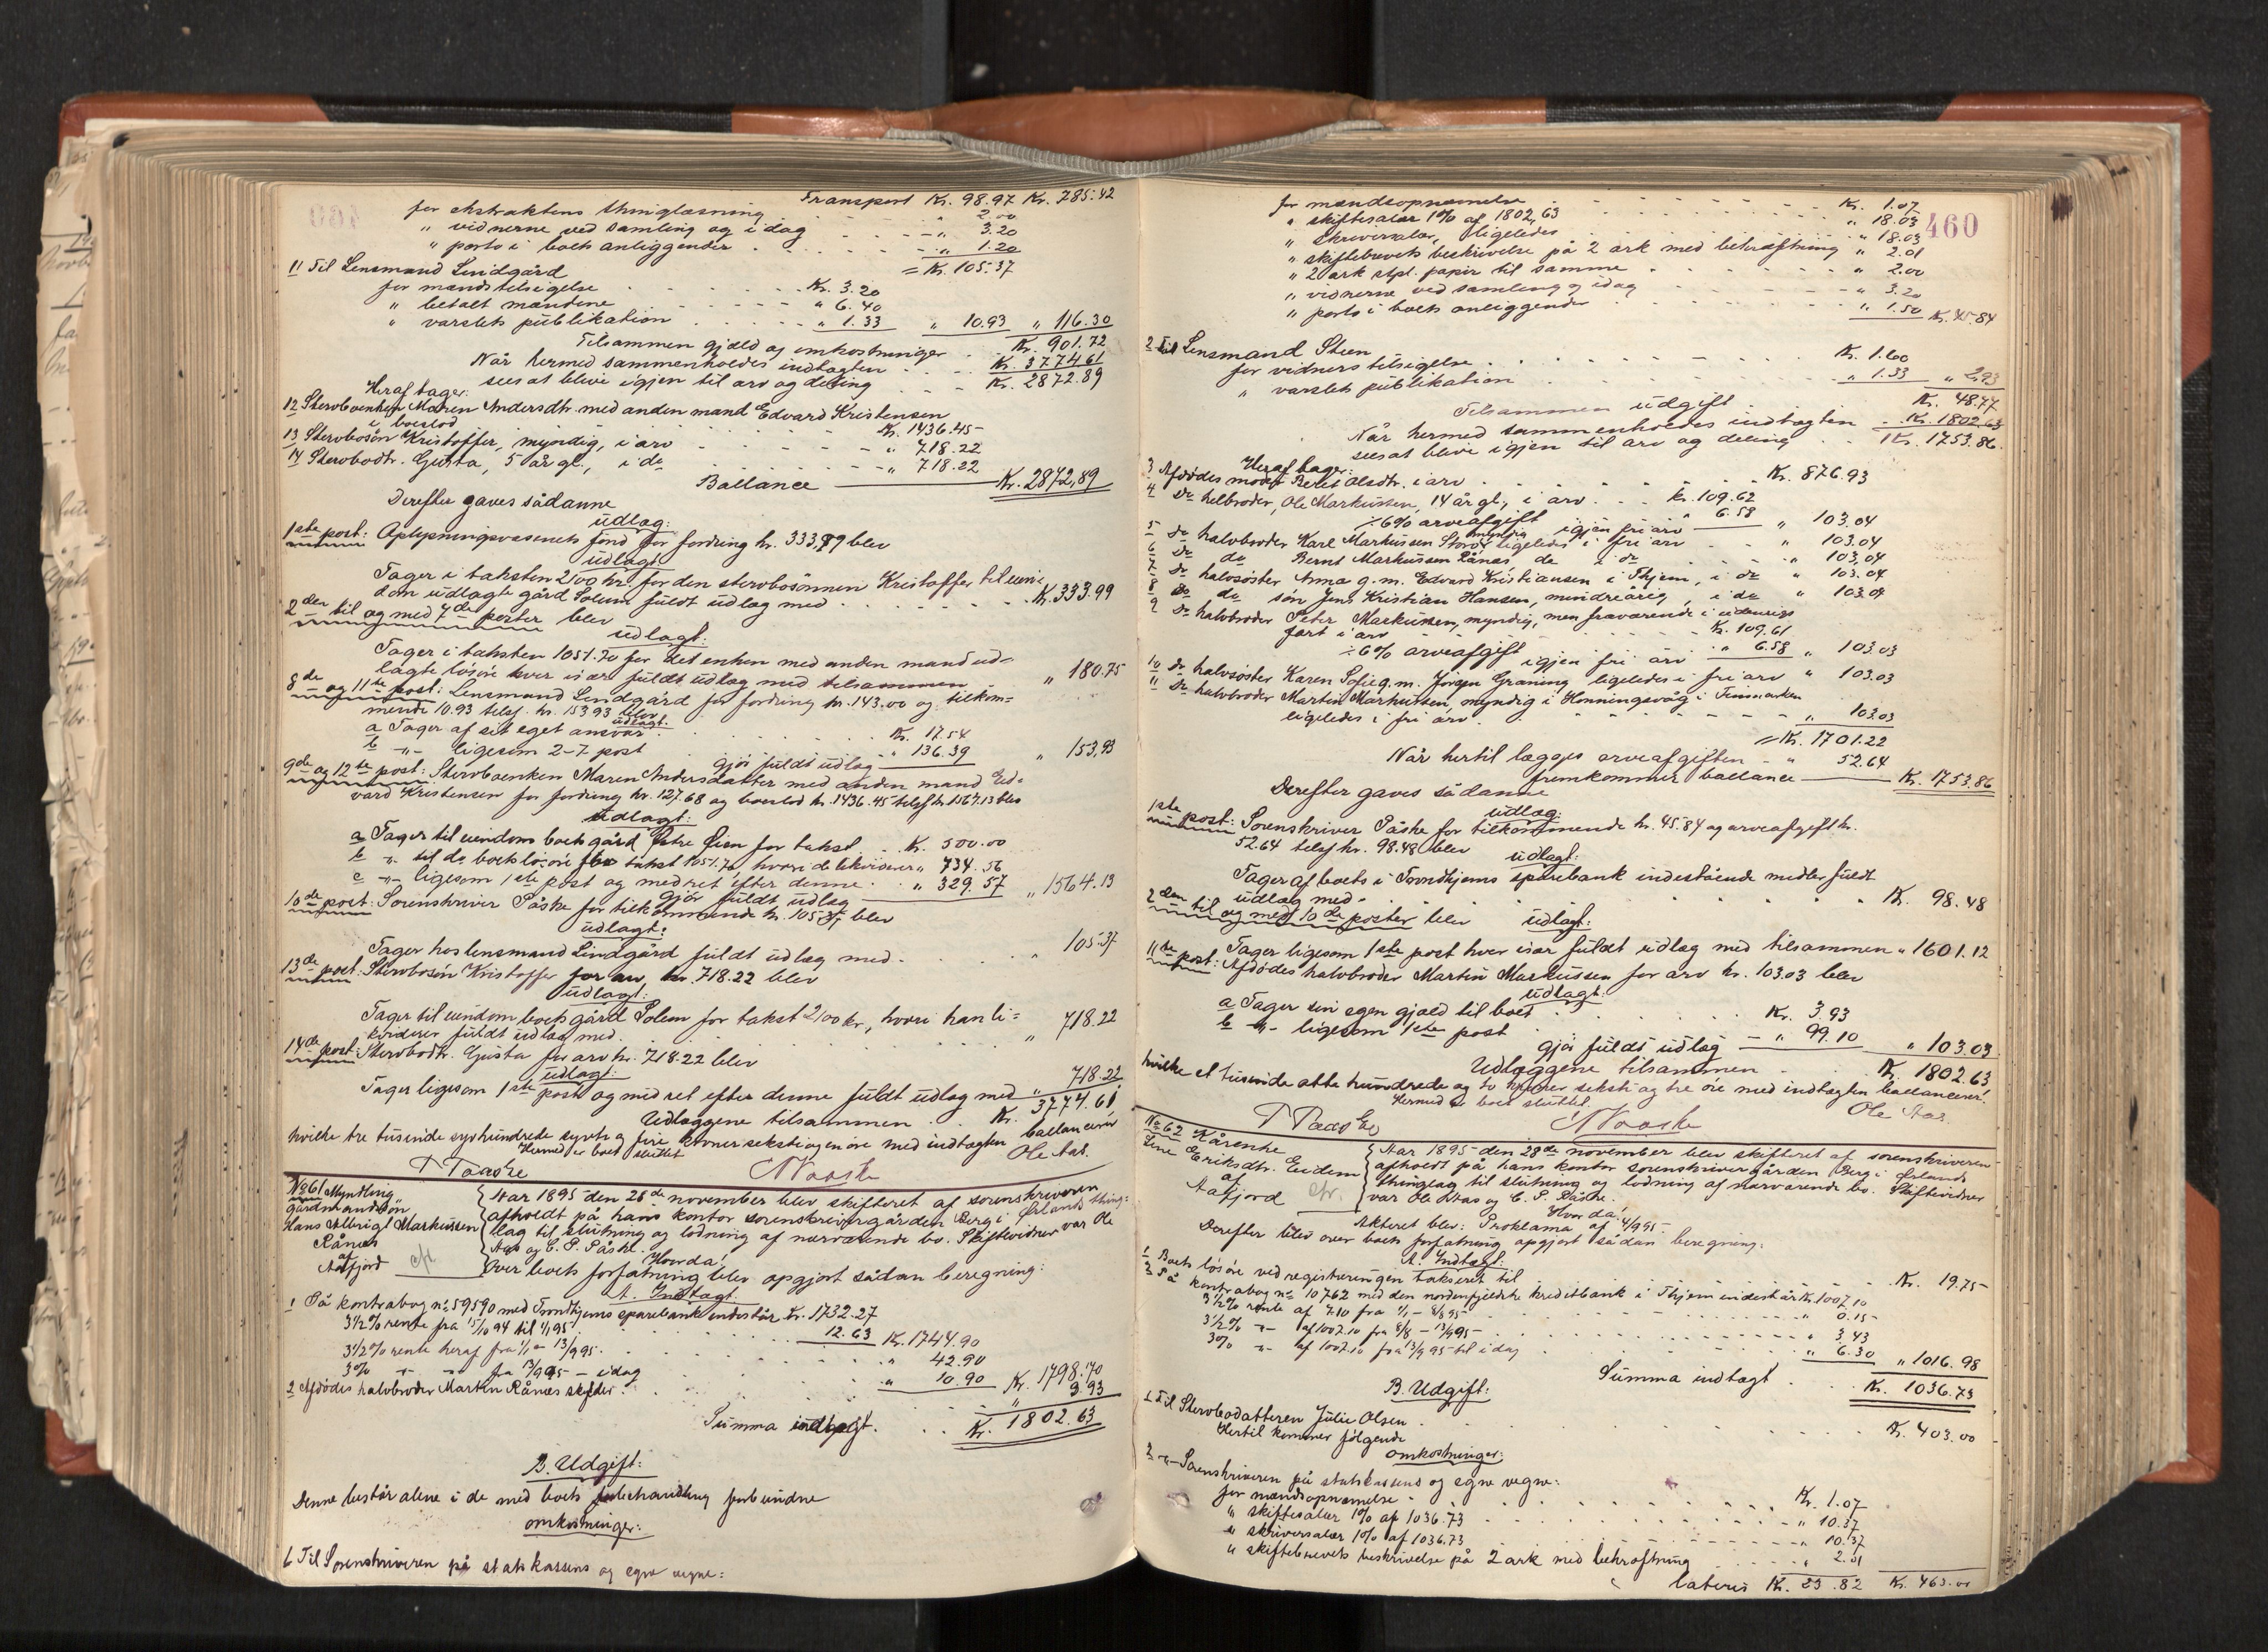 Transport Kr. 98.97 Kr. 785.42
for ekstraktens thinglæsning " 2.00
" vidnerne ved samling og idag " 3.20
" porto i boets anliggender " 1.20
= Kr. 105.37
11 Til Lensmand Lindgård
for mandstilsigelse Kr. 3.20
" betalt mændene " 6.40
" varslets publikation " 1.33 " 10.93 " 116.30
Tilsammen gjæld og omkostninger Kr. 901.72
Når hermed sammenholdes indtægten Kr. 3774.61
sees at blive igjen til arv og deling Kr. 2872.89
Heraf tager:
12 Stervboenken Maren Andersdtr. med anden mand Edvard Kristensen
i boeslod Kr. 1436.45
13 Stervbosøn Kristoffer, myndig, i arv " 718.22
14 Stervbodtr. Gusta, 5 år gl., i do " 718.22
Ballance Kr. 2872,89
Derefter gaves sådanne
udlæg:
1ste post: Oplysningsvæsenets fond for fordring kr. 333,99 blev
udlagt:
Tager i taksten 2100 kr. for den stervbosønnen Kristoffer til eien-
dom udlagte gård Solem fuldt udlæg med Kr. 333.99
2den til og med 7de poster blev
udlagt:
Tager i taksten 1051.70 for det enken med anden mand ud=
lagte løsøre hver især fuldt udlæg med tilsammen " 180.75
8de og 11te post: Lensmand Lindgård for fordring kr. 143.00 og tilkom=
mende 10.93 tilsf. kr. 153 93 blev
udlagt:
a Tager af sit eget ansvar Kr. 17.54
b -"- ligesom 2-7 post " 136.39
gjør fuldt udlæg " 153,93
9de og 12te post: Stervboenken Maren Andersdatter med anden mand Ed=
vard Kristensen for fordring kr. 127.68 og boeslod kr. 1436.45 tilsf kr. 1564.13 blev
udlagt:
a Tager til eiendom boets gård Østre Eien for takst Kr. 500.00
b -"- til do boets løsøre for takst 1051.70, hvori de likviderer " 734.56
c -"- ligesom 1ste post og med ret efter denne " 329.57
gjør fuldt udlæg " 1564.13
10de post: Sorenskriver Påske for tilkommende kr. 105.37 blev
udlagt:
Tager hos lensmand Lindgård fuldt udlæg med " 105.37
13de post: Stervbosøn Kristoffer for arv kr. 718.22 blev
udlagt:
Tager til eiendom boets gård Solem for takst 2100 kr., hvori han li=
kviderer fuldt udlæg med " 718.22
14de post: Stervbodtr. Gusta for arv kr. 718.22 blev
udlagt:
Tager ligesom 1ste post og med ret efter denne fuldt udlæg med " 718.22
Udlæggene tilsammen Kr. 3774.61,
hvilke tre tusinde syvhundrede sytti og fire kroner seksti og en øre med indtægten ballancerer
Hermed er boet sluttet
T Paaske N Aaske Ole Aas.
No 61 Myndling
gårdmandssøn
Hans Albrigt Markussen
Rånes
af
Aafjord
Aar 1895 den 28de november blev skifteret af sorenskriveren
afholdt på hans kontor sorenskrivergården Berg i Ørlands thing:
lag til slutning og lodning af nærværende bo. Skiftevidner var Ole
Aas og C. P. Påske.
Hvorda!
Over boets forfatning blev opgjort sådan beregning:
A. Indtægt.
1 På kontrabog no 59590 med Trondhjems sparebank indestår Kr. 1732.27
3 1/2 % rente fra 15/10 94 til 1/1 95 12.63 Kr. 1744.90
3 1/2 % rente heraf fra 1/1 - 13/9 95 " 42.90
3% -"- -"- fra 13/9 95 - idag " 10.90 Kr. 1798.70
2 Afdødes halvbroder Martin Rånes skylder " 3.93
Summa indtægt. Kr. 1802.63
B. Udgift:
Denne består alene i de med boets behandling forbundne
omkostninger:
1 Til Sorenskriveren på statskassens og egne vegne:
460
for mændsopnævnelse Kr. 1.07
" skiftesalær 1% af 1802,63 " 18.03
" skriversalær, ligeledes " 18.03
" skiftebrevets beskrivelse på 2 ark med bekræftning " 2.01
" 2 ark stpl. papir til samme " 2.00
" vidnerne ved samling og idag " 3.20
" porto i boets anliggender " 1.50 Kr. 45.84
2 Til Lensmand Steen
for vidners tilsigelse Kr. 1.60
" varslets publikation " 1.33 " 2,93
Tilsammen udgift Kr. 48.77
Når hermed sammenholdes indtægten Kr. 1802,63
sees at blive igjen til arv og deling Kr. 1753.86.
Heraf tager:
3 Afdødes moder Berit Olsdtr. i arv Kr. 876.93
4 Do helbroder, Ole Markussen, 14 år gl., i arv Kr. 109.62
÷ 6% arveafgift " 6.58
igjen fri arv " 103.04
5 do halvbroder Karl Markussen Storøi myndig ligeledes i fri arv " 103.04
6 Do do Bernt Markussen Rånes do i do " 103.04
7 Do halvsøster Anna g.m. Edvard Kristiansen i Thjem, i do " 103.04
8 Do do søn Jens Kristian Hansen, mindreårig, i do " 103.04
9 Do halvbroder Peter Markussen, myndig, men fraværende i udenrigs
fart i arv Kr. 109.61
÷ 6% arveafgift " 6.58
igjen fri arv " 103.03
10 Do halvsøster Karen Sofie g.m. Jørgen Graning ligeledes i fri arv " 103.03
11 Do halvbroder Martin Markussen, myndig i Honningsvåg i Finmarken
ligeledes i fri arv " 103.03
= Kr. 1701.22
Når hertil lægges arveafgiften " 52.64
fremkommer ballance Kr. 1753.86
Derefter gaves sådanne
udlæg:
1ste post: Sorenskriver Påske for tilkommende kr. 45.84 og arveafgift kr.
52.64 tilsf kr. 98.48 blev
udlagt:
Tager af boets i Trondhjems sparebank indestående midler fuldt
udlæg med Kr. 98.48
2den til og med 10de poster blev udlagt:
Tager ligesom 1ste post hver især fuldt udlæg med tilsammen " 1601.12
11te post: Afdødes halvbroder Martin Markussen for arv kr. 103.03 blev
udlagt:
a Tager sin egen gjæld til boet Kr. 3.93
b -"- ligesom 1ste post " 99.10
gjør fuldt udlæg " 103.03
Udlæggene tilsammen Kr. 1802.63,
hvilke et tusinde otte hundrede og to kroner seksti og tre øre med indtægten ballancerer.
Hermed er boet sluttet.
T Paaske N Aaske Ole Aas.
No 62 Kårenke
Line Eriksdtr. Eidem
af
Aafjord
Aar 1895 den 28de november blev skifteret af sorenskriveren
afholdt på hans kontor sorenskrivergården Berg i Ørlands
thinglag til slutning og lodning af nærværende bo. Skiftevidner
var Ole Aas og C. P. Påske.
Hvorda!
Akteret blev: Proklama af 4/9 95
Derefter blev over boets forfatning opgjort sådan beregning:
A. Indtægt:
1 Boets løsøre ved registreringen takseret til Kr. 19.75
2 På kontrabog no 10762 med den nordenfjeldske kreditbank i Thjem indestår Kr. 1007.10
3 1/2 % rente af 7.10 fra 1/1 - 8/8 95 " 0.15
3 1/2 % -"- af 1007.10 fra 8/8 - 13/9 95 " 3.43
3% -"- af 1007.10 fra 13/9 95 til idag " 6.30 " 1016.98
Summa indtægt Kr. 1036.73
B. Udgift:
1 Til Stervbodatteren Julie Olsen Kr. 403.00
Hertil kommer følgende
omkostninger:
2 -"- Sorenskriveren på statskassens og egne vegne:
for mændsopnævnelse Kr. 1.07
" skiftesalær 1% af 1036.73 " 10.37
" skriversalær 1% af 1036.73 " 10.37
" skiftebrevets beskrivelse på 2 ark med bekræftning " 2.01
lateris Kr. 23.82 Kr. 403.00